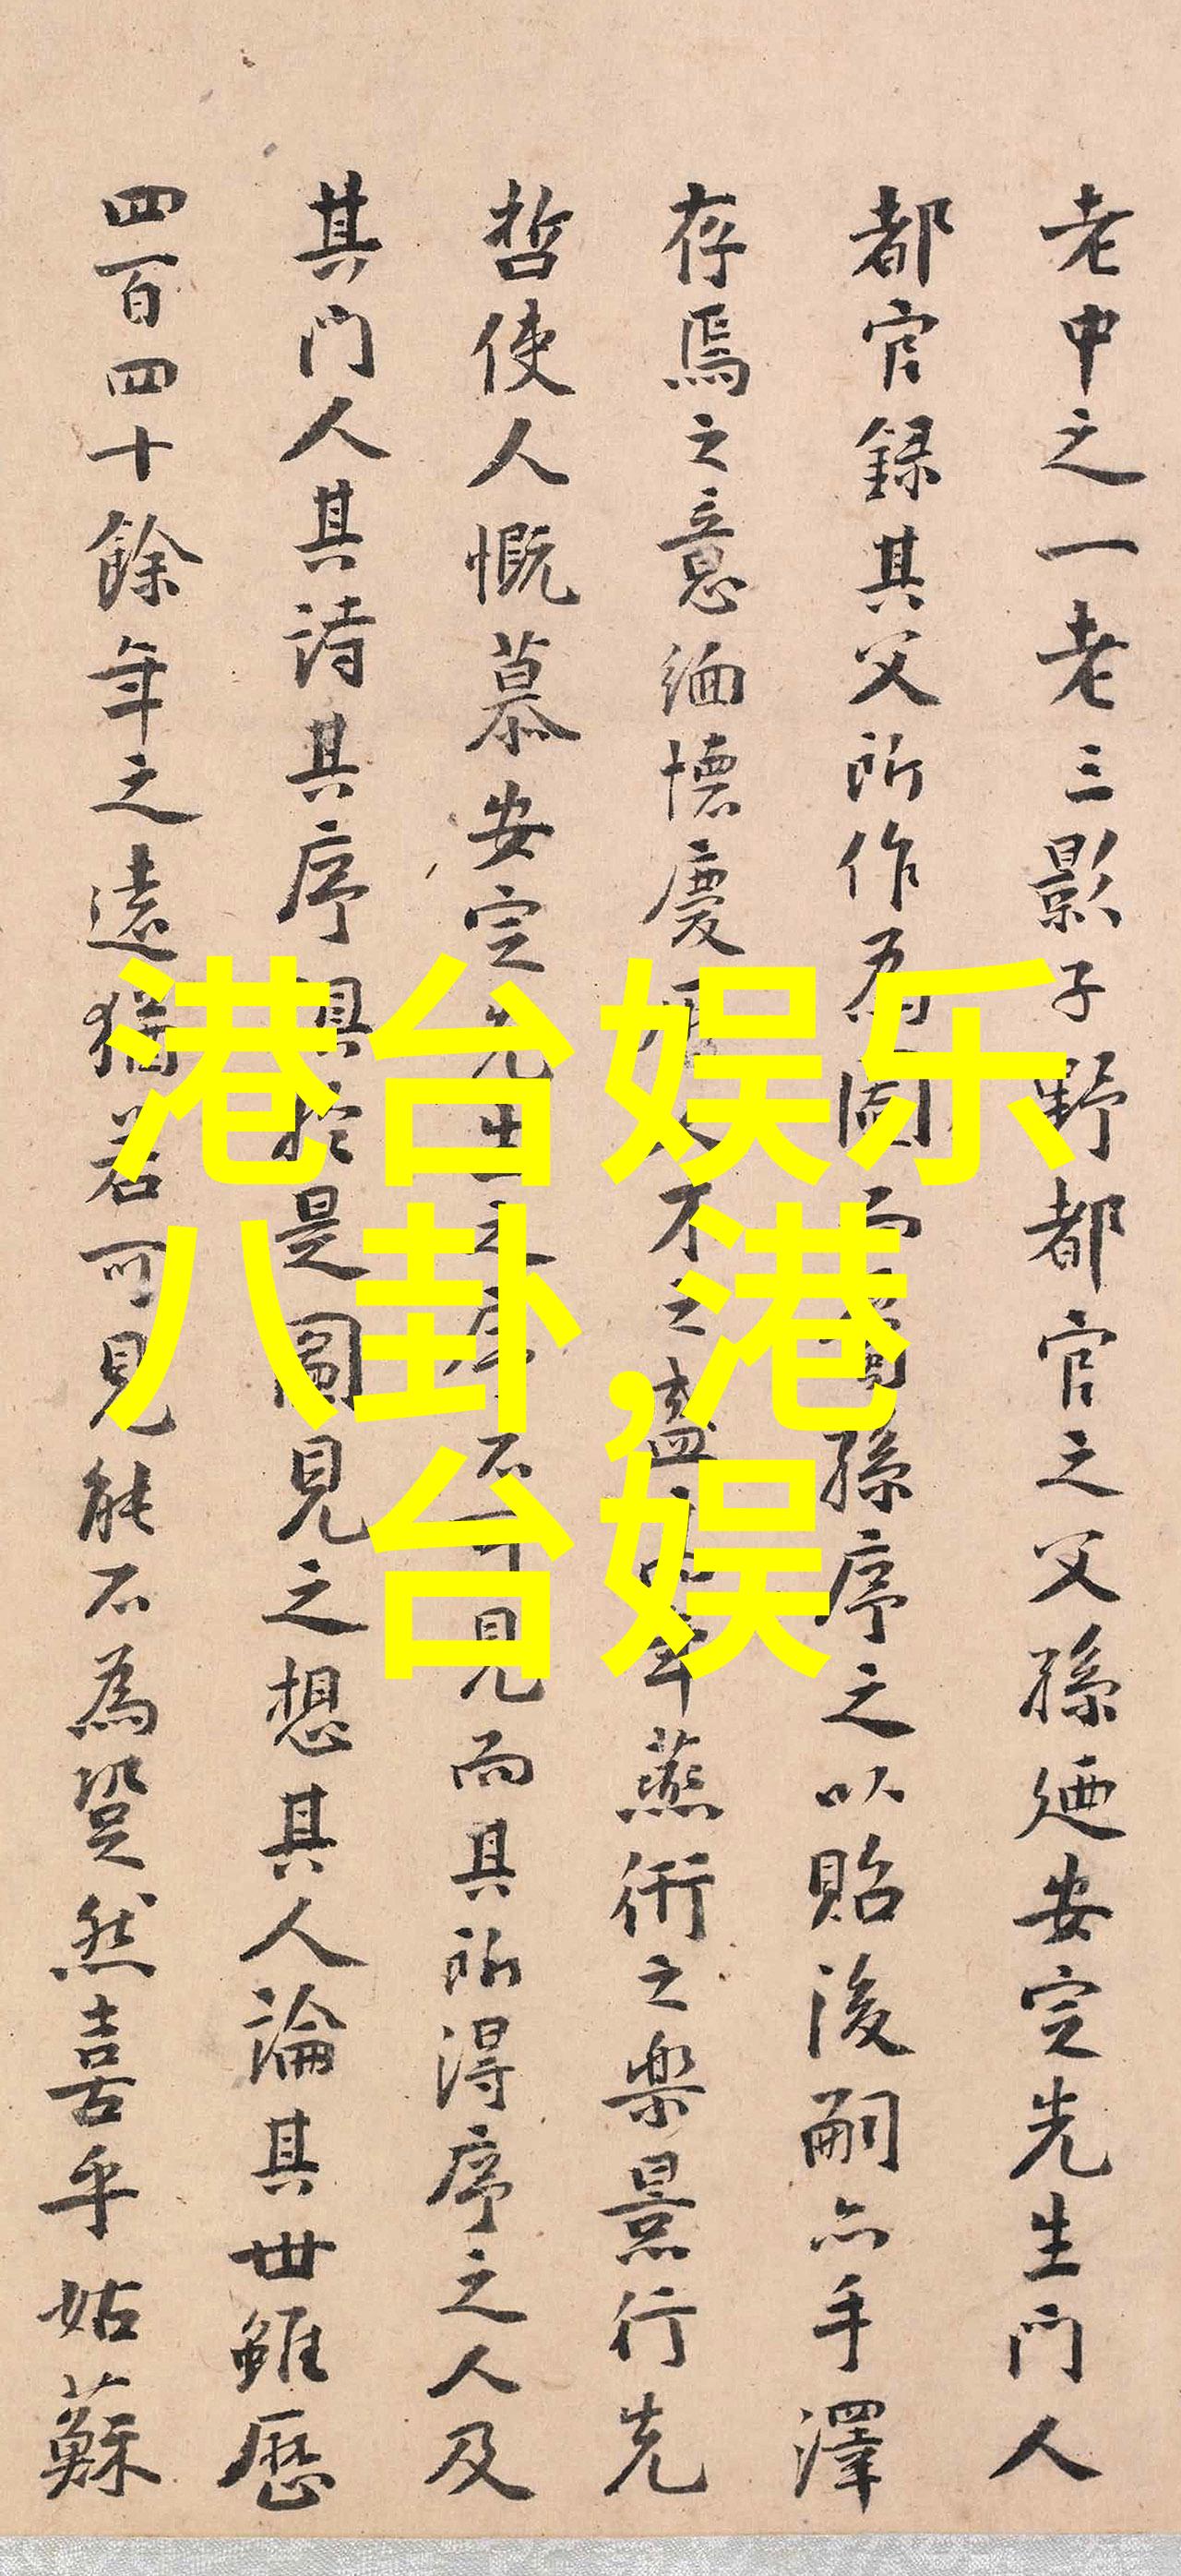 老中之一老三影子野都官之父孫廼安定先生門人
都官録其父所作為圖而屬孫序之以貽後嗣亦手澤
存焉之意緬懷慶不之盛年燕衎之樂景行先
哲使人慨慕安定先生之序不可見而其所得序之人及
其門人其詩其序俱於是圖見之想其人論其世雖歷
四百四十餘年之遠猶若可見能不為跫然喜乎姑蘇
港台娱乐
八卦,港
台娱